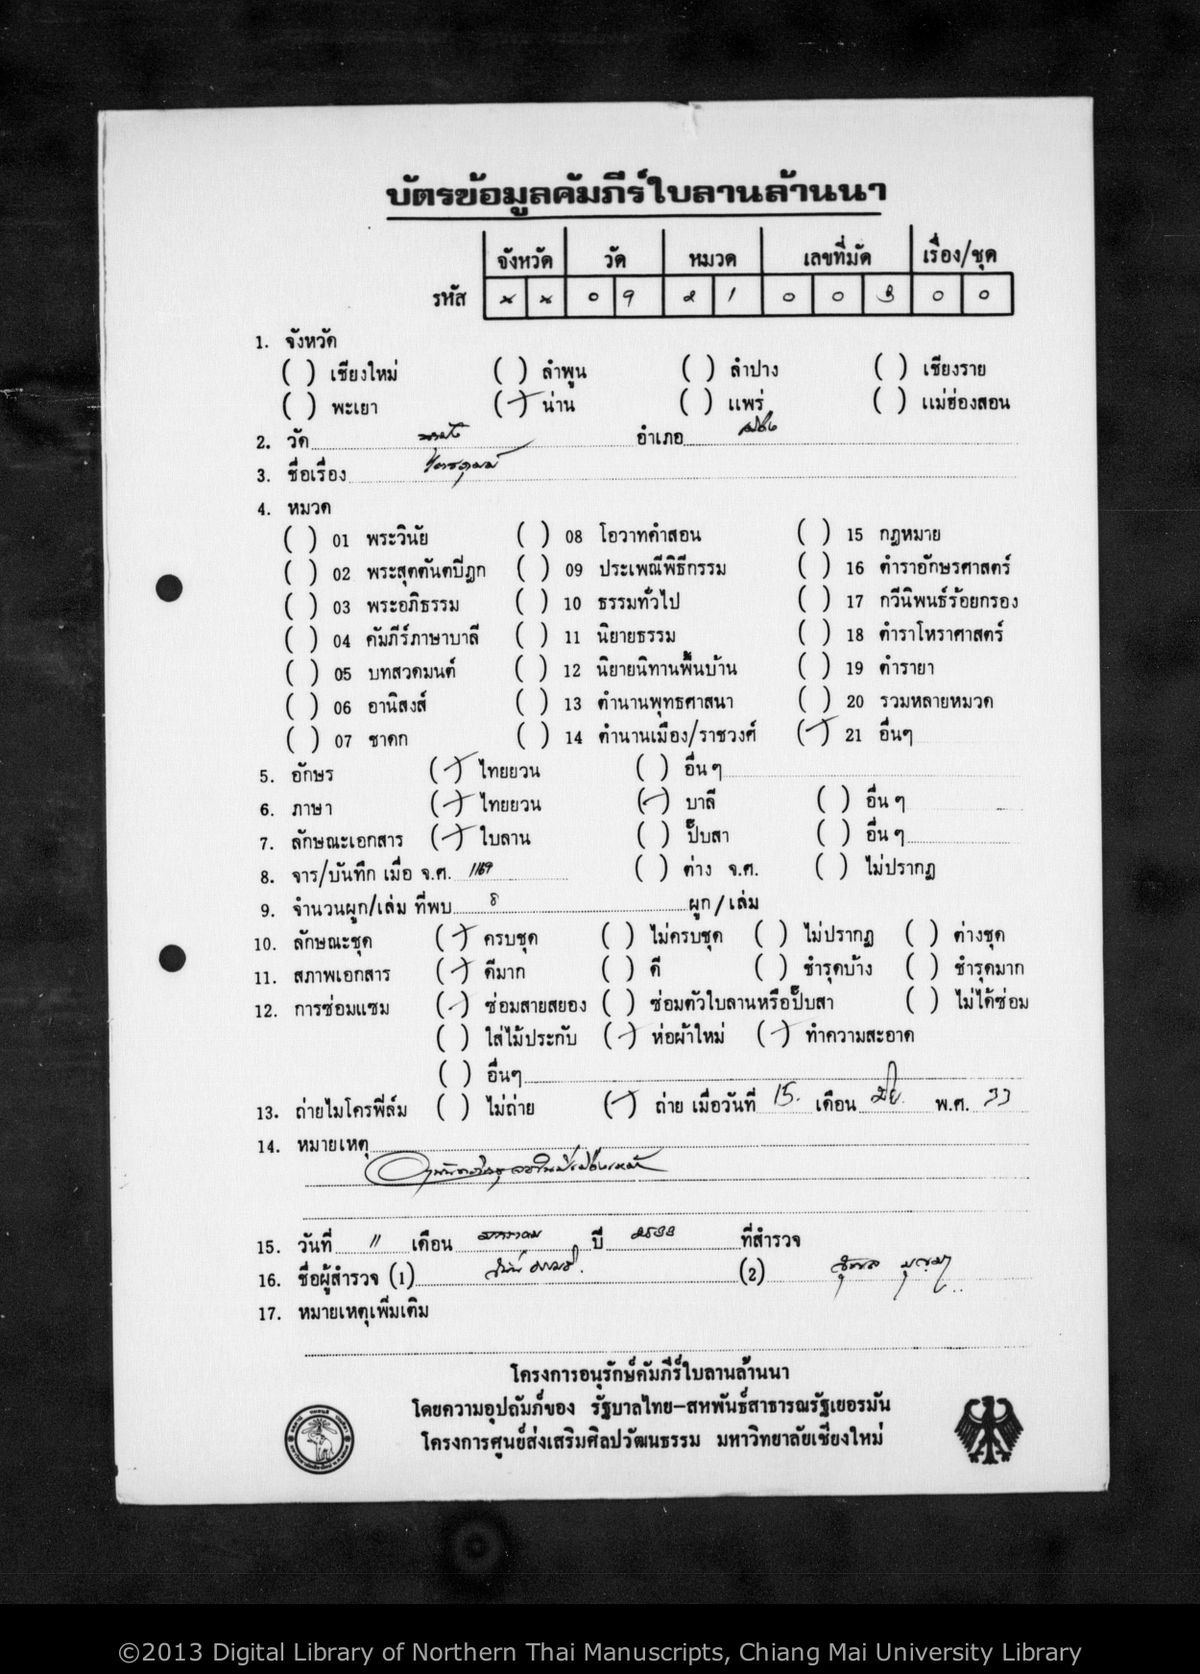 บัตรข้อมูลคัมภีร์ใบลานล้านนา
จังหวัด วัด หมวด เลขที่มัด เรื่อง/ชุด
รหัส × × ๐ ๑ ๒ ๑ ๐ ๐ ๓ ๐ ๐
1. จังหวัด
( ) เชียงใหม่ ( ) ลำพูน ( ) ลำปาง ( ) เชียงราย
( ) พะเยา (/) น่าน ( ) แพร่ ( ) แม่ฮ่องสอน
2. วัด อำเภอ เมือง
3. ชื่อเรื่อง
4. หมวด
( ) 01 พระวินัย ( ) 08 โอวาทคำสอน ( ) 15 กฎหมาย
( ) 02 พระสุตตันตปิฎก ( ) 09 ประเพณีพิธีกรรม ( ) 16 ตำราอักษรศาสตร์
( ) 03 พระอภิธรรม ( ) 10 ธรรมทั่วไป ( ) 17 กวีนิพนธ์ร้อยกรอง
( ) 04 คัมภีร์ภาษาบาลี ( ) 11 นิยายธรรม ( ) 18 ตำราโหราศาสตร์
( ) 05 บทสวดมนต์ ( ) 12 นิยายนิทานพื้นบ้าน ( ) 19 ตำรายา
( ) 06 อานิสงส์ ( ) 13 ตำนานพุทธศาสนา ( ) 20 รวมหลายหมวด
( ) 07 ชาดก ( ) 14 ตำนานเมือง/ราชวงศ์ (/) 21 อื่นๆ
5. อักษร (/) ไทยยวน ( ) อื่นๆ
6. ภาษา (/) ไทยยวน (/) บาลี ( ) อื่นๆ
7. ลักษณะเอกสาร (/) ใบลาน ( ) ปั๊บสา ( ) อื่นๆ
8. จาร/บันทึก เมื่อ จ.ศ. 1169 ( ) ต่าง จ.ศ. ( ) ไม่ปรากฏ
9. จำนวนผูก/เล่ม ที่พบ 8 ผูก/เล่ม
10. ลักษณะชุด (/) ครบชุด ( ) ไม่ครบชุด ( ) ไม่ปรากฏ ( ) ต่างชุด
11. สภาพเอกสาร (/) ดีมาก ( ) ดี ( ) ชำรุดบ้าง ( ) ชำรุดมาก
12. การซ่อมแซม (/) ซ่อมสายสยอง ( ) ซ่อมตัวใบลานหรือปั๊บสา ( ) ไม่ได้ซ่อม
( ) ใส่ไม้ประกับ (/) ห่อผ้าใหม่ (/) ทำความสะอาด
( ) อื่นๆ
13. ถ่ายไมโครฟิล์ม ( ) ไม่ถ่าย (/) ถ่าย เมื่อวันที่ 15. เดือน มิย. พ.ศ. 33
14. หมายเหตุ
15. วันที่ 11 เดือน มกราคม ปี ๒๕๓๓ ที่สำรวจ
16. ชื่อผู้สำรวจ (1) (2)
17. หมายเหตุเพิ่มเติม
โครงการอนุรักษ์คัมภีร์ใบลานล้านนา
โดยความอุปถัมภ์ของ รัฐบาลไทย-สหพันธ์สาธารณรัฐเยอรมัน
โครงการศูนย์ส่งเสริมศิลปวัฒนธรรม มหาวิทยาลัยเชียงใหม่
©2013 Digital Library of Northern Thai Manuscripts, Chiang Mai University Library